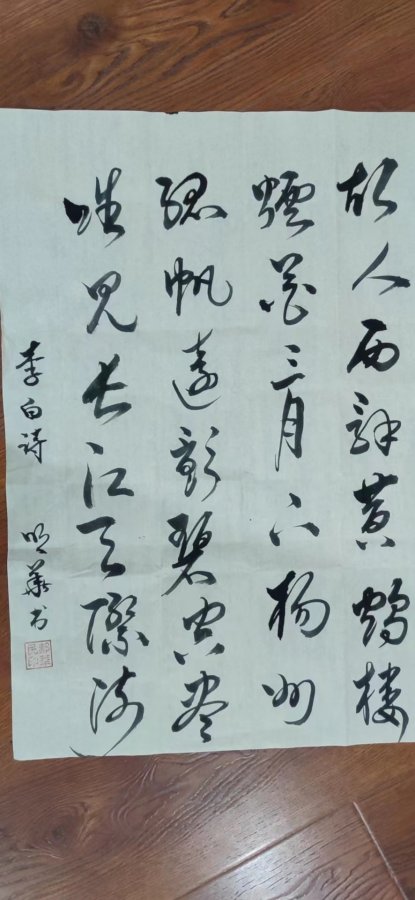 故人西辞黄鹤楼
烟花三月下杨州
孤帆远影碧空尽
唯见长江天际流
李白诗 明华书